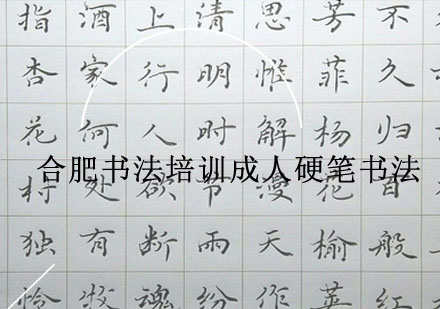 不久归百般红
芳菲杨花榆荚
思惟解漫天作
清明时节雨纷
上行人欲断魂
酒家何处有牧
指杏花村独怜
合肥书法培训成人硬笔书法